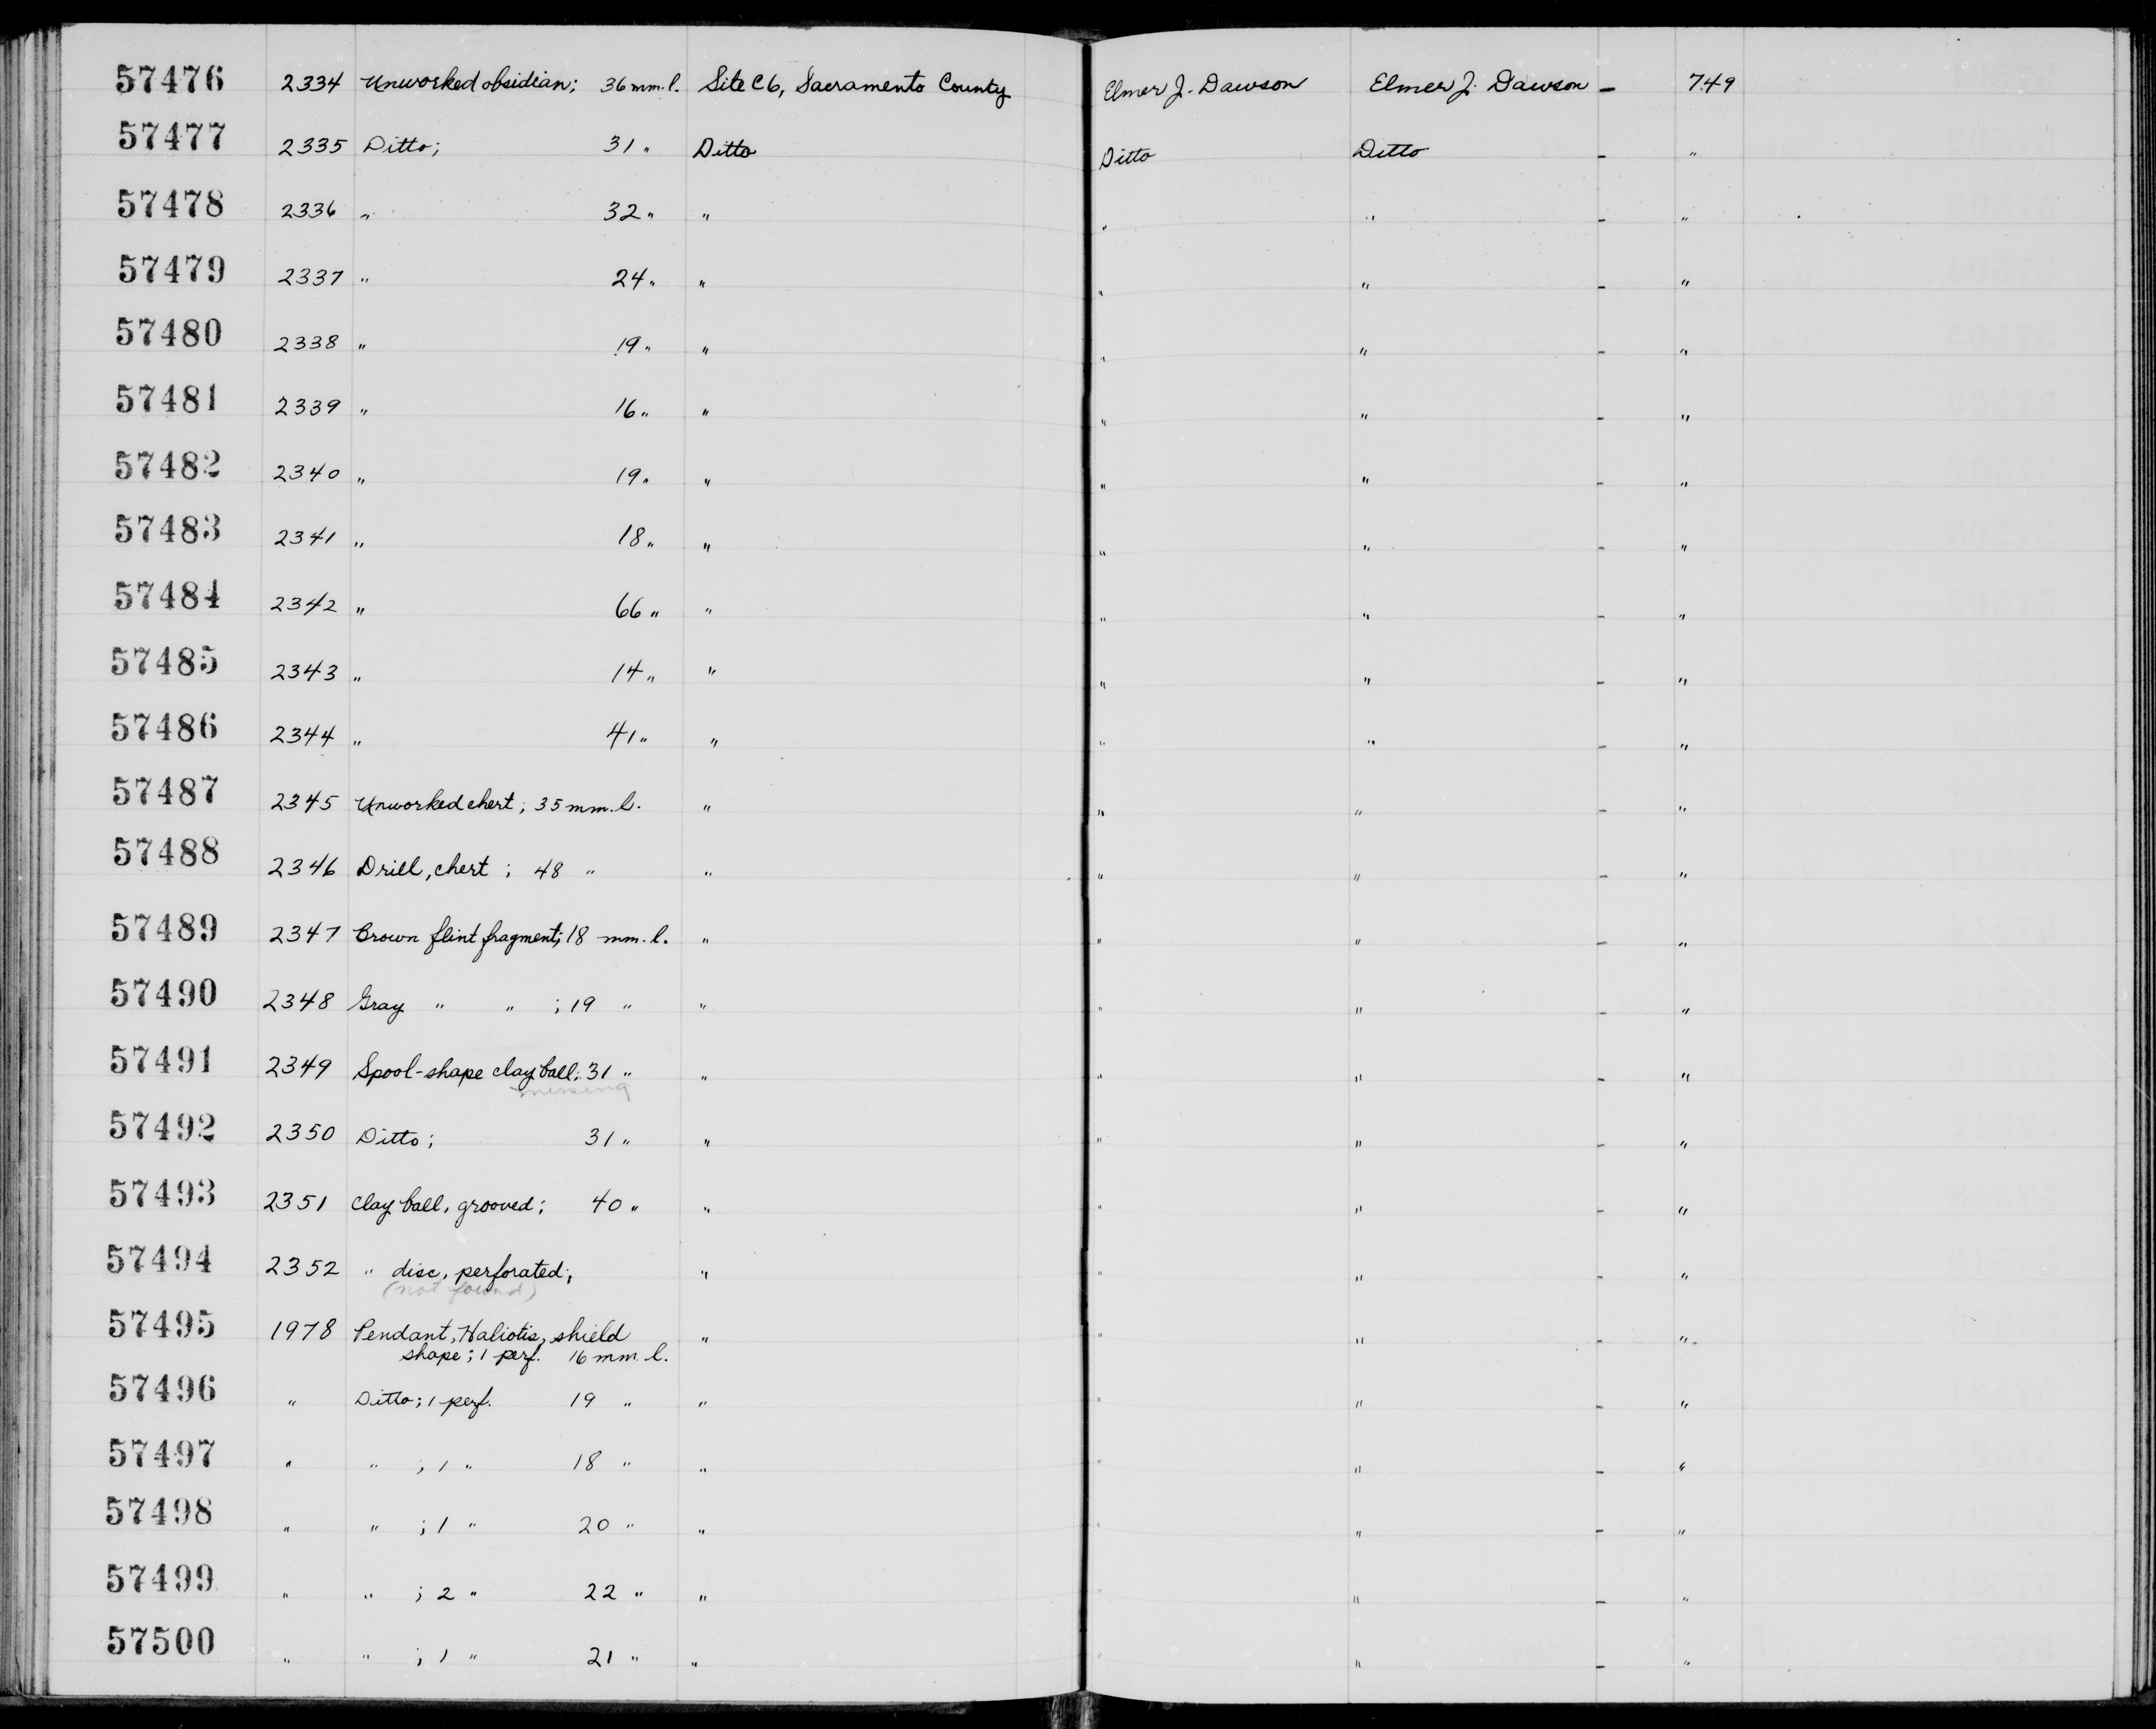 57476 2334 Unworked obsidian; 36 mm. l. Site C6, Sacramento County Elmer J. Dawson Elmer J. Dawson – 749
57477 2335 Ditto; 31 " Ditto Ditto Ditto – "
57478 2336 " 32 " " " " – "
57479 2337 " 24 " " " " – "
57480 2338 " 19 " " " " – "
57481 2339 " 16 " " " " – "
57482 2340 " 19 " " " " – "
57483 2341 " 18 " " " " – "
57484 2342 " 66 " " " " – "
57485 2343 " 14 " " " " – "
57486 2344 " 41 " " " " – "
57487 2345 Unworked chert; 35 mm. l. " " " – "
57488 2346 Drill, chert; 48 " " " " – "
57489 2347 Brown flint fragment; 18 mm. l. " " " – "
57490 2348 Gray " " ; 19 " " " " – "
57491 2349 Spool-shape clay ball; 31 " " " " – "
missing
57492 2350 Ditto; 31 " " " " – "
57493 2351 Clay ball, grooved; 40 " " " " – "
57494 2352 " disc, perforated; " " " – "
(not found)
57495 1978 Pendant, Haliotis, shield " " " – "
shape; 1 perf. 16 mm l.
57496 " Ditto; 1 perf. 19 " " " " – "
57497 " " ; 1 " 18 " " " " – "
57498 " " ; 1 " 20 " " " " – "
57499 " " ; 2 " 22 " " " " – "
57500 " " ; 1 " 21 " " " " – "